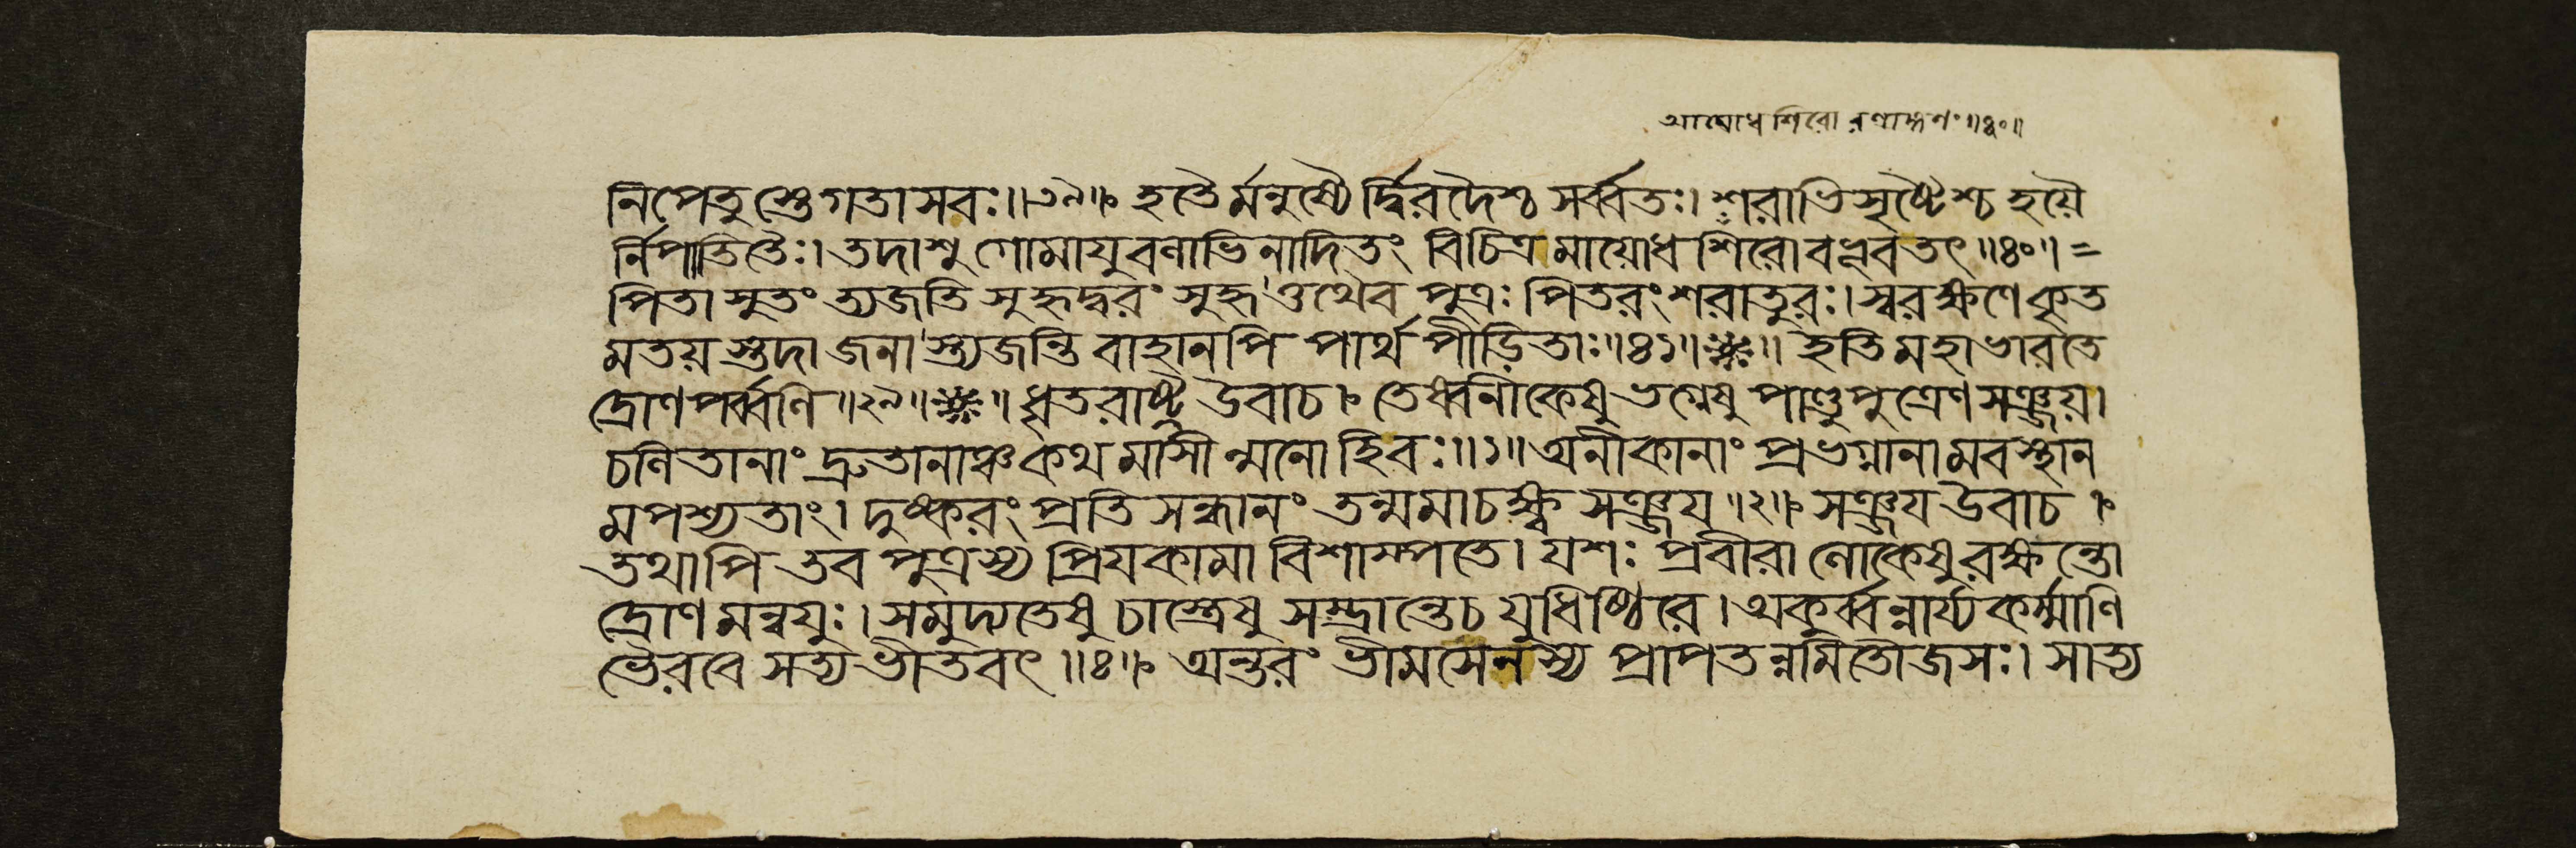 আযোধশিরোরণাঙ্গণং॥৪০॥
নিপেতুস্তেগতাসবঃ॥৩৯॥ হতৈর্মনুষ্যৈর্দ্বিরদৈশ্চ সর্ব্বতঃ। শরাভিসৃষ্টৈশ্চ হয়ৈ
র্নিপাতিতৈঃ। তদাশু গোমাযুবলাভিনাদিতং বিচিত্রমায়োধশিরোবভূবতৎ॥৪০॥=
পিতা সুতং ত্যজতি সুহৃদ্বরং সুহৃত্তথৈব পুত্রঃ পিতরং শরাতুরঃ। স্বরক্ষণে কৃত
মতয়স্তদা জনাস্ত্যজন্তি বাহানপি পার্থ পীড়িতাঃ॥৪১॥❋॥ ইতি মহাভারতে
দ্রোণপর্ব্বণি॥২৯॥❋॥ ধৃতরাষ্ট্র উবাচ। তেষ্বনীকেষু ভগ্নেষু পাণ্ডুপুত্রেণ সঞ্জয়।
চলিতানাং দ্রুতানাঞ্চ কথমাসীন্মনো হি বঃ॥১॥ অনীকানাং প্রভগ্নানামবস্থান
মপশ্যতাং। দুষ্করং প্রতিসন্ধানং তন্মমাচক্ষ্ব সঞ্জয॥২॥ সঞ্জয উবাচ।
তথাপি তব পুত্রস্য প্রিযকামা বিশাম্পতে। যশঃ প্রবীরা লোকেষু রক্ষন্তো
দ্রোণমন্বযুঃ। সমুদ্যতেষু চাস্ত্রেষু সম্প্রাপ্তে চ যুধিষ্ঠিরে। অকুর্ব্বন্নার্য্যকর্ম্মাণি
ভৈরবে সত্যভীতবৎ॥৪॥ অন্তরং ভীমসেনস্য প্রাপতন্নমিতৌজসঃ। সাত্য